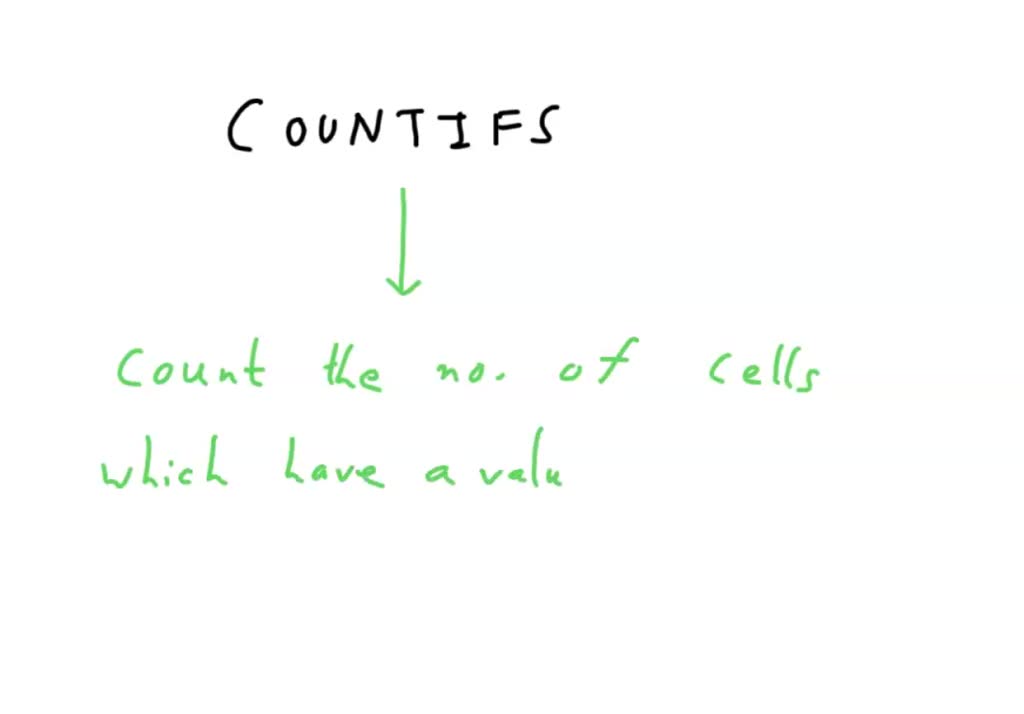 COUNTIFS
Count the no. of cells
which have a valu